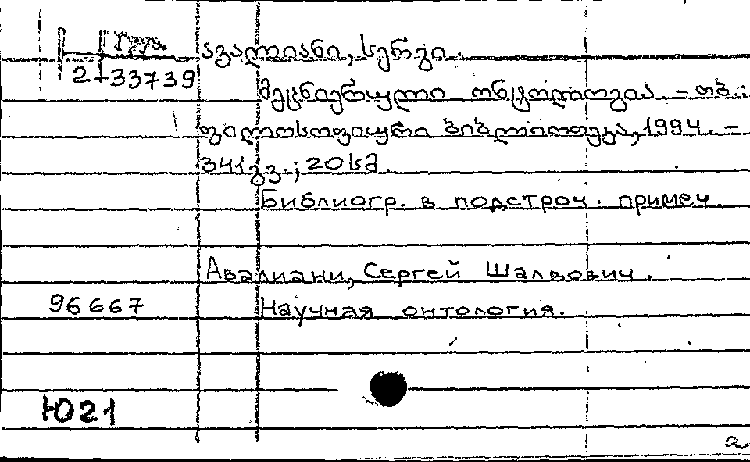 ავალიანი, სერგი.
2-33739
მეცნიერული ონტოლოგია. – თბ.:
ფილოსოფიური ბიბლიოთეკა, 1994. –
341 გვ.; 20 სმ.
Библиогр. в подстроч. примеч
Авалиани, Сергей Шалвович.
96667 Научная онтология.
Ю21